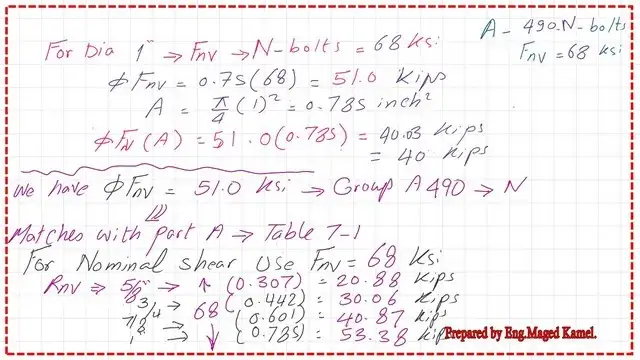 A - 490.N-bolts
For Dia 1" → Fnv → N-bolts = 68 ksi
Fnv = 68 ksi
ϕ Fnv = 0.75(68) = 51.0 Kips
A = π/4 (1)² = 0.785 inch²
ϕ Fn(A) = 51.0(0.785) = 40.03 Kips
= 40 Kips
we have ϕ Fnv = 51.0 Ksi → Group A490 → N
Matches with part A → Table 7-1
For Nominal shear Use Fnv = 68 Ksi
Rnv ⇒ 5/8" → ↑ (0.307) = 20.88 Kips
3/4 → 68 (0.442) = 30.06 Kips
7/8 → (0.601) = 40.87 Kips
1" → ↓ (0.785) = 53.38 Kips
Prepared by Eng.Maged Kamel.